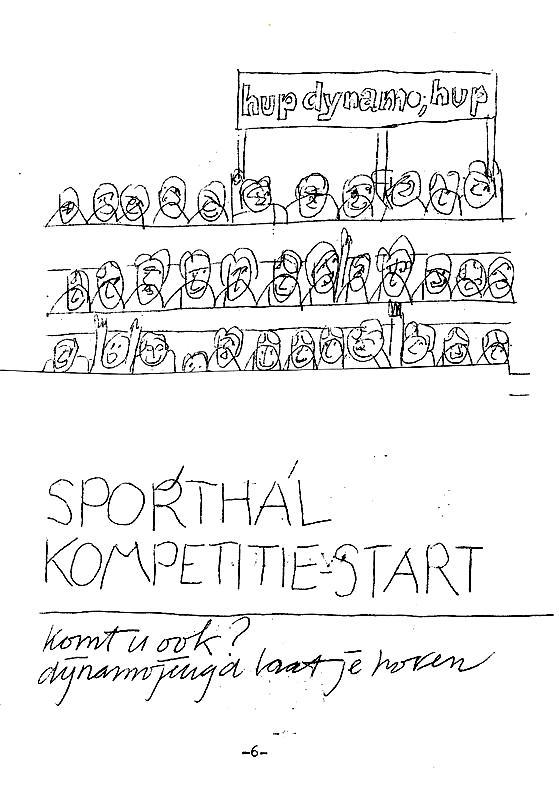 hup dynamo, hup
SPORTHAL
KOMPETITIE-START
komt u ook?
dynamojeugd laat je horen
-6-